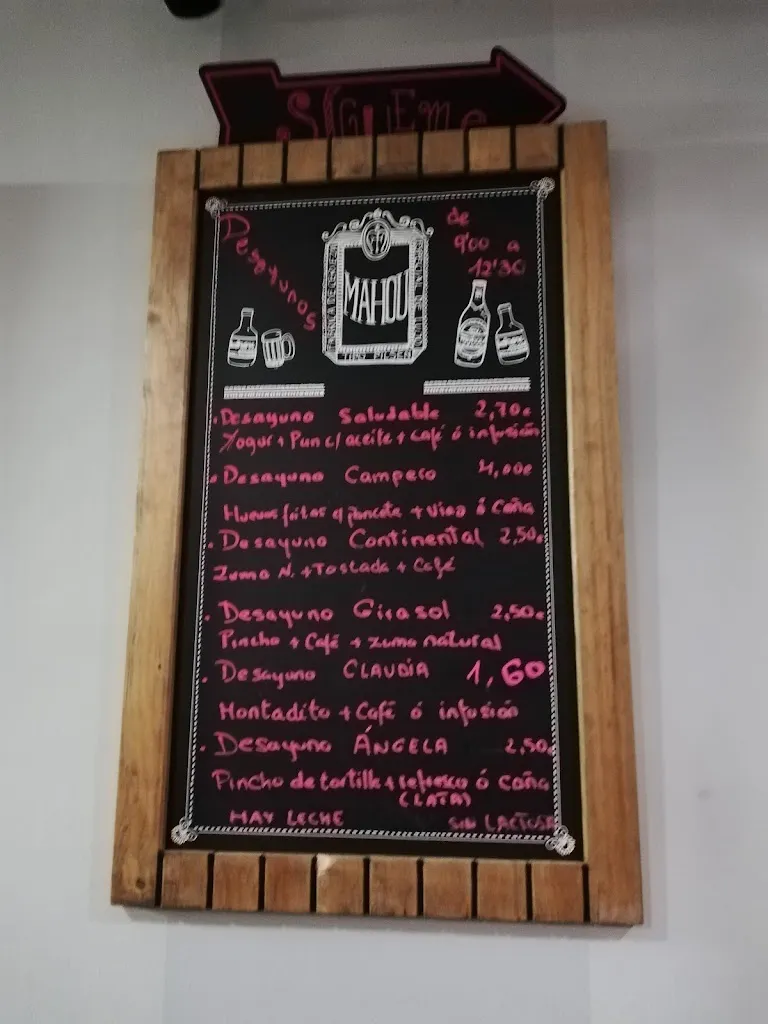 SÍGUEME
Desayunos
de
9'00 a
12'30
MAHOU
TIPO PILSEN
Desayuno Saludable 2,70€
Yogur + Pan c/ aceite + Café ó infusión
Desayuno Campero 4,00€
Huevos fritos c/ panceta + vino ó Caña
Desayuno Continental 2,50€
Zumo N. + Tostada + Café
Desayuno Girasol 2,50€
Pincho + Café + zumo natural
Desayuno CLAUDIA 1,60
Montadito + Café ó infusión
Desayuno ÁNGELA 2,50€
Pincho de tortilla + refresco ó Caña
(LATA)
HAY LECHE SIN LACTOSA